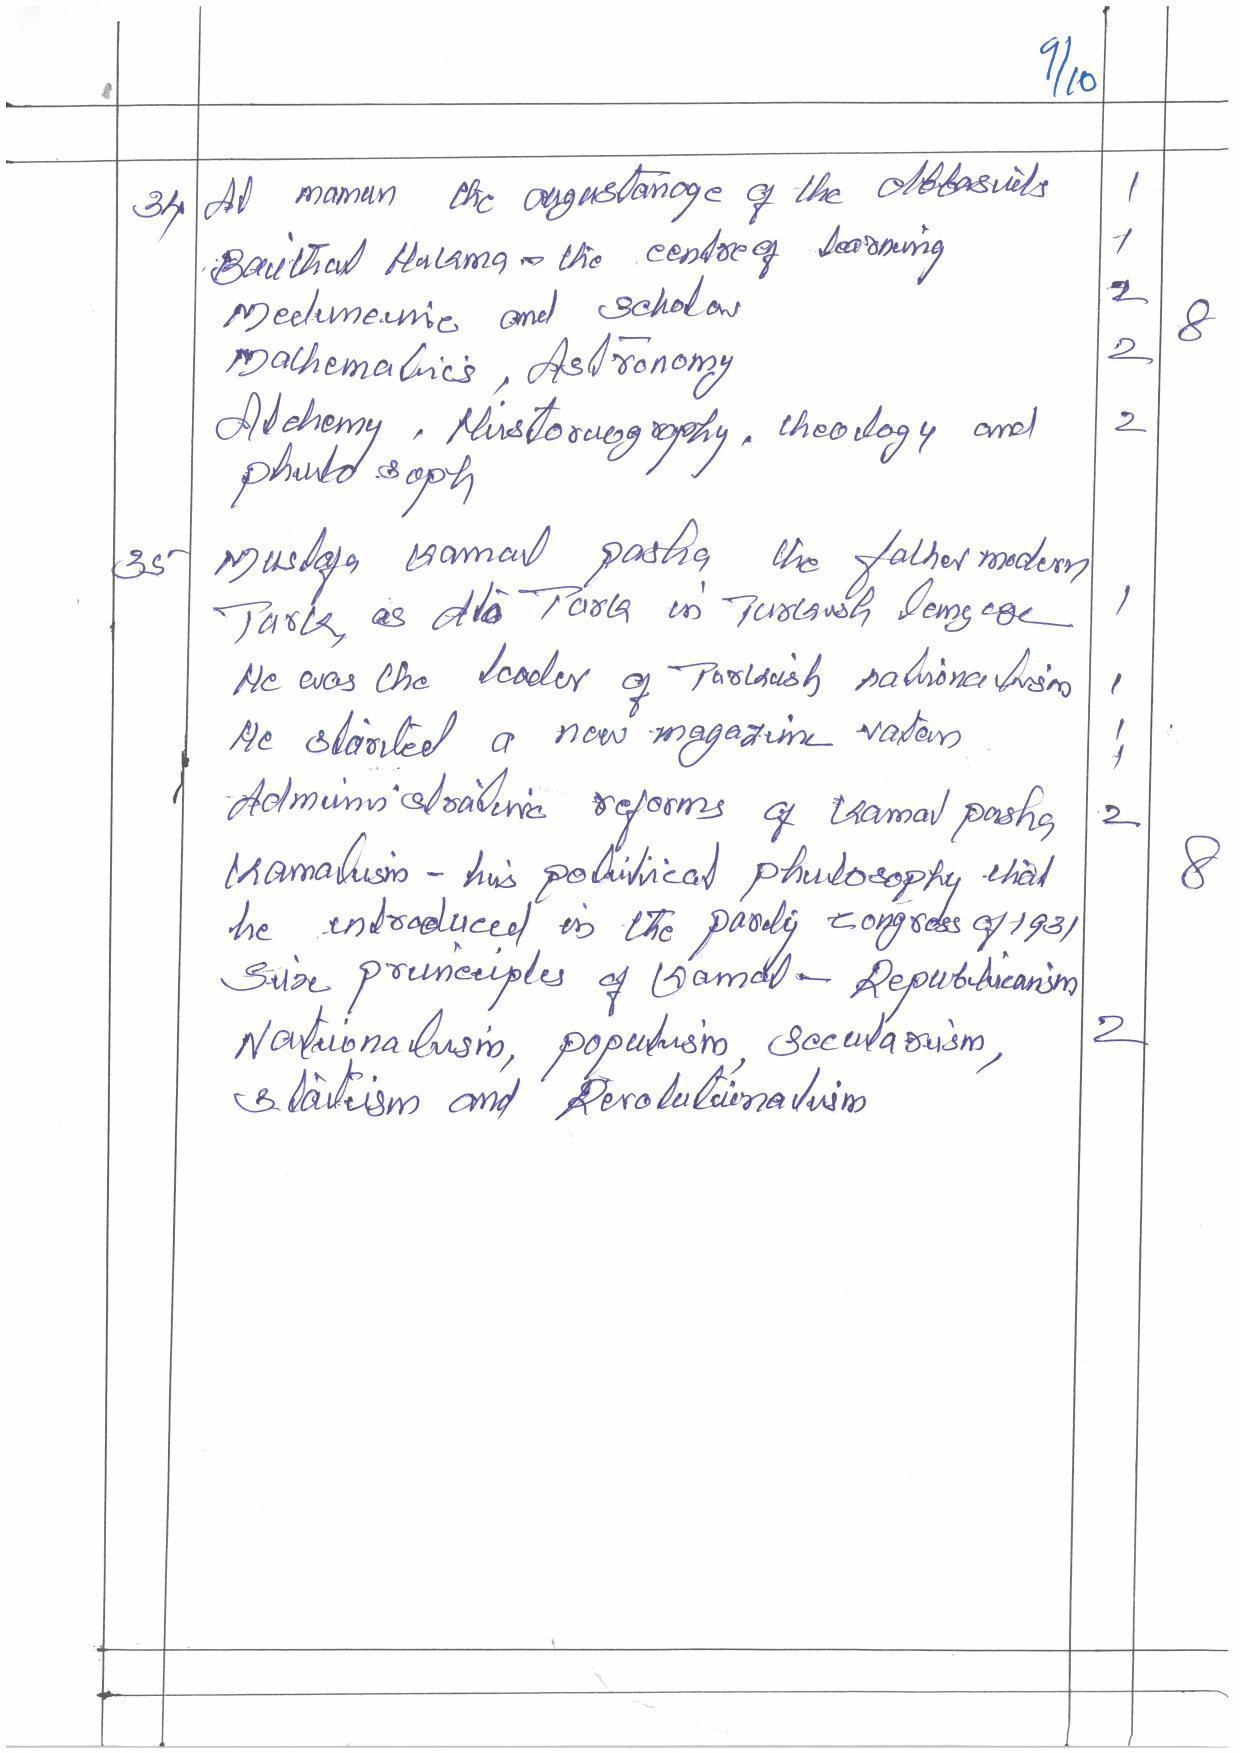 9/10
34 Al mamun the augustanage of the Abbasids 1
Baithal Hakama - the centre of learning 1
Medimeinie and scholar 2
8
Mathematics, Astronomy 2
Alchemy, Historiography, theology and 2
philosoph
35 Mustafa Kamal pasha the father modern
Turk, as Ata Turk in Turkish 1
He was the leader of Turkish nationalism 1
He started a new magazine vatan 1
1
Administrative reforms of Kamal pasha 2
Kamalism - his political philosophy that 8
he introduced in the party congress of 1931
Six principles of Kamal - Republicanism
Nationalism, populism, secularism, 2
statism and Revolutionalism